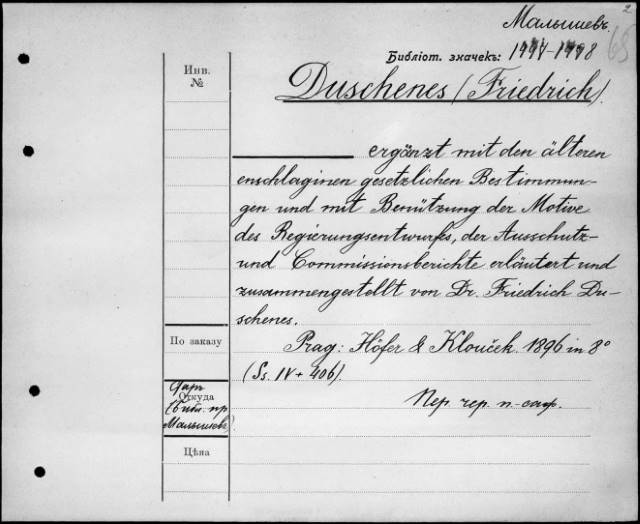 2
Малышевъ.
65
Библіот. значекъ: 1997-1998
Инв.
№
Duschenes (Friedrich).
ergänzt mit den älteren
enschlaginen gesetzlichen Bestimmun-
gen und mit Benützung der Motive
des Regierungsentwurfes, der Ausschutz-
und Commissionsberichte erläutert und
zusammengestellt von Dr. Friedrich Du-
schenes.
По заказу
Prag: Höfer & Klouček. 1896 in 8°
(Ss. IV + 406).
Даръ
Откуда
(Библ. пр.
Малышева)
Пер. чер. п.-саф.
Цѣна